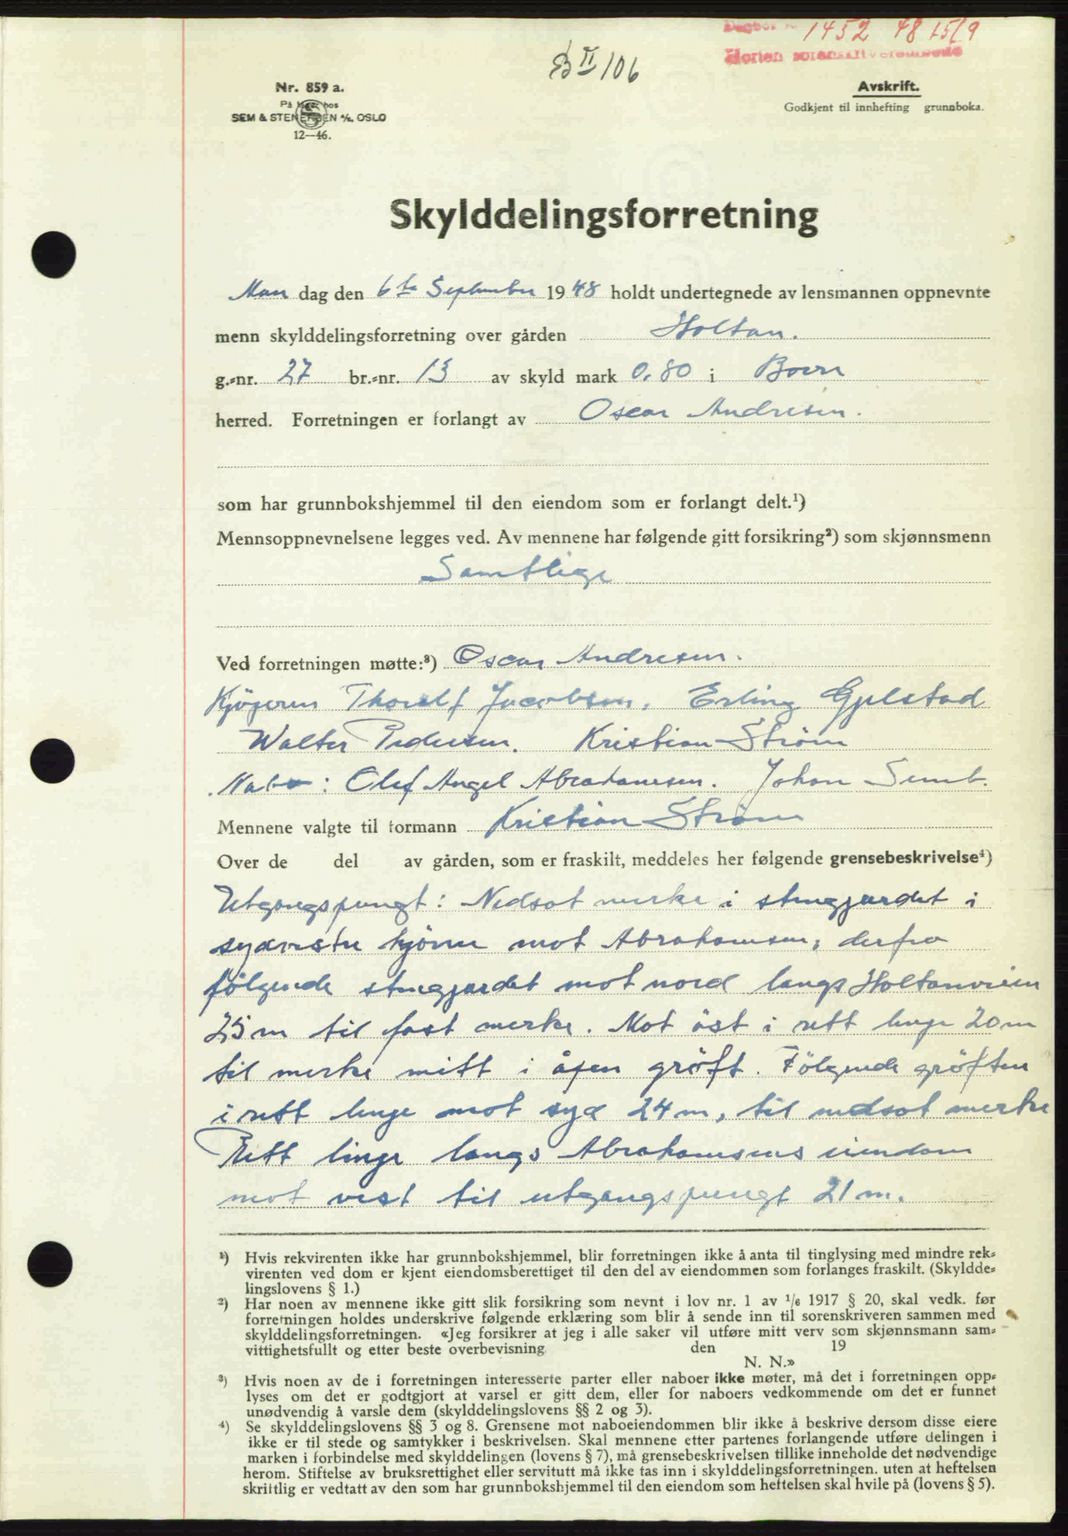 Dagbok nr. 1452 48 15/9
Horten sorenskriverembede
B II 106
Nr. 859 a.
På lager hos
SEM & STENERSEN A/S, OSLO
12—46.
Avskrift.
Godkjent til innhefting grunnboka.
Skylddelingsforretning
Man dag den 6te September 1948 holdt undertegnede av lensmannen oppnevnte
menn skylddelingsforretning over gården Holtan.
g.-nr. 27 br.-nr. 13 av skyld mark 0.80 i Borre
herred. Forretningen er forlangt av Oscar Andresen.
som har grunnbokshjemmel til den eiendom som er forlangt delt.¹)
Mennsoppnevnelsene legges ved. Av mennene har følgende gitt forsikring²) som skjønnsmenn
Samtlige
Ved forretningen møtte:³) Oscar Andresen.
Kjøperen Thoralf Jacobsen. Erling Gjelstad
Walter Pedersen. Kristian Strøm
Nabo: Olef Angel Abrahamsen. Johan Semb.
Mennene valgte til formann Kristian Strøm
Over de del av gården, som er fraskilt, meddeles her følgende grensebeskrivelse⁴)
Utgangspungt: Nedsat merke i stengjærdet i
sydvestre hjörne mot Abrahamsen, derfra
fölgende stengjærdet mot nord langs Holtanveien
25 m til fast merke. Mot öst i rett linje 20 m
til merke mitt i åpen gröft. Fölgende gröften
i rett linje mot syd 24 m, til nedsat merke
Rett linje langs Abrahamsens eiendom
mot vest til utgangspungt 21 m.
¹) Hvis rekvirenten ikke har grunnbokshjemmel, blir forretningen ikke å anta til tinglysing med mindre rek-
virenten ved dom er kjent eiendomsberettiget til den del av eiendommen som forlanges fraskilt. (Skyldde-
lingslovens § 1.)
²) Har noen av mennene ikke gitt slik forsikring som nevnt i lov nr. 1 av 1/6 1917 § 20, skal vedk. før
forretningen holdes underskrive følgende erklæring som blir å sende inn til sorenskriveren sammen med
skylddelingsforretningen. «Jeg forsikrer at jeg i alle saker vil utføre mitt verv som skjønnsmann sam-
vittighetsfullt og etter beste overbevisning den 19
N. N.»
³) Hvis noen av de i forretningen interesserte parter eller naboer ikke møter, må det i forretningen opp-
lyses om det er godtgjort at varsel er gitt dem, eller for naboers vedkommende om det er funnet
unødvendig å varsle dem (skylddelingslovens §§ 2 og 3).
⁴) Se skylddelingslovens §§ 3 og 8. Grensene mot naboeiendommen blir ikke å beskrive dersom disse eiere
ikke er til stede og samtykker i beskrivelsen. Skal mennene etter partenes forlangende utføre delingen i
marken i forbindelse med skylddelingen (lovens § 7), må grensebeskrivelsen tillike inneholde det nødvendige
herom. Stiftelse av bruksrettighet eller servitutt må ikke tas inn i skylddelingsforretningen. uten at heftelsen
skriftlig er vedtatt av den som har grunnbokshjemmel til den eiendom som heftelsen skal hvile på (lovens § 5).